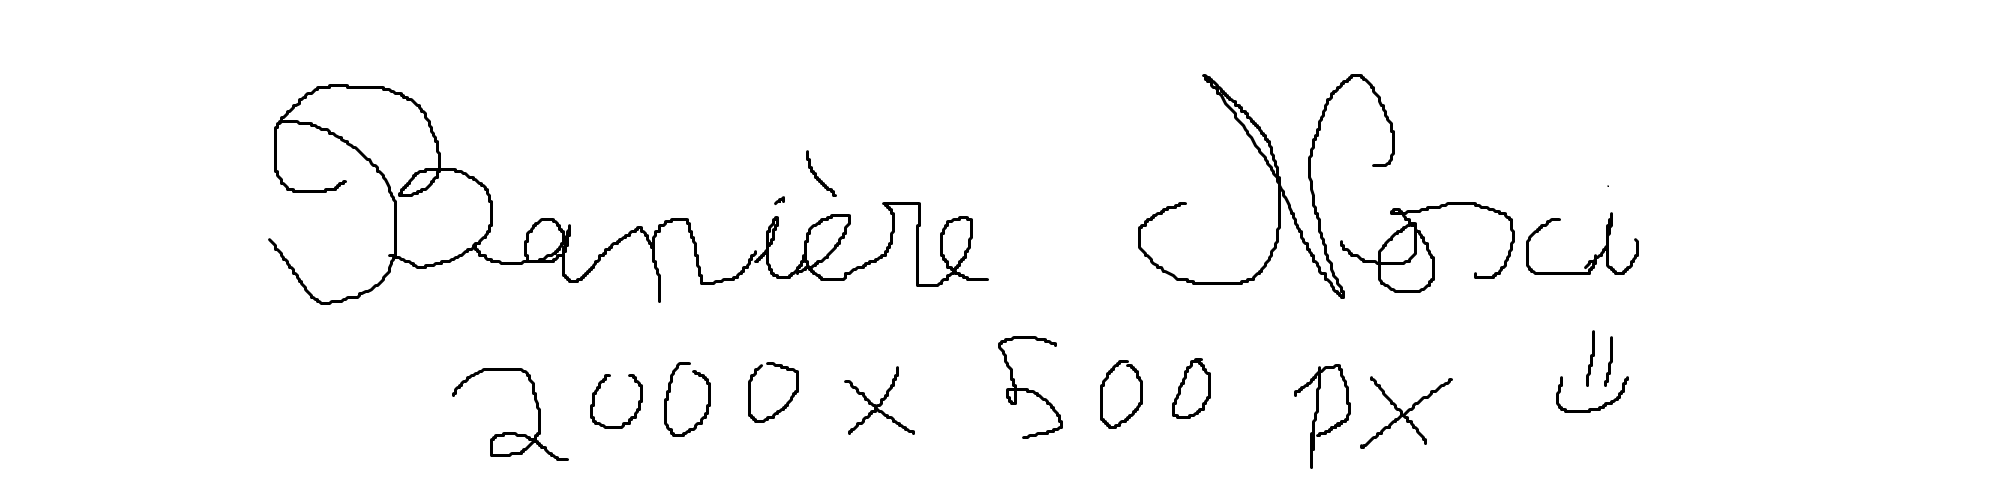 Banière Nosci
2000 x 500 px